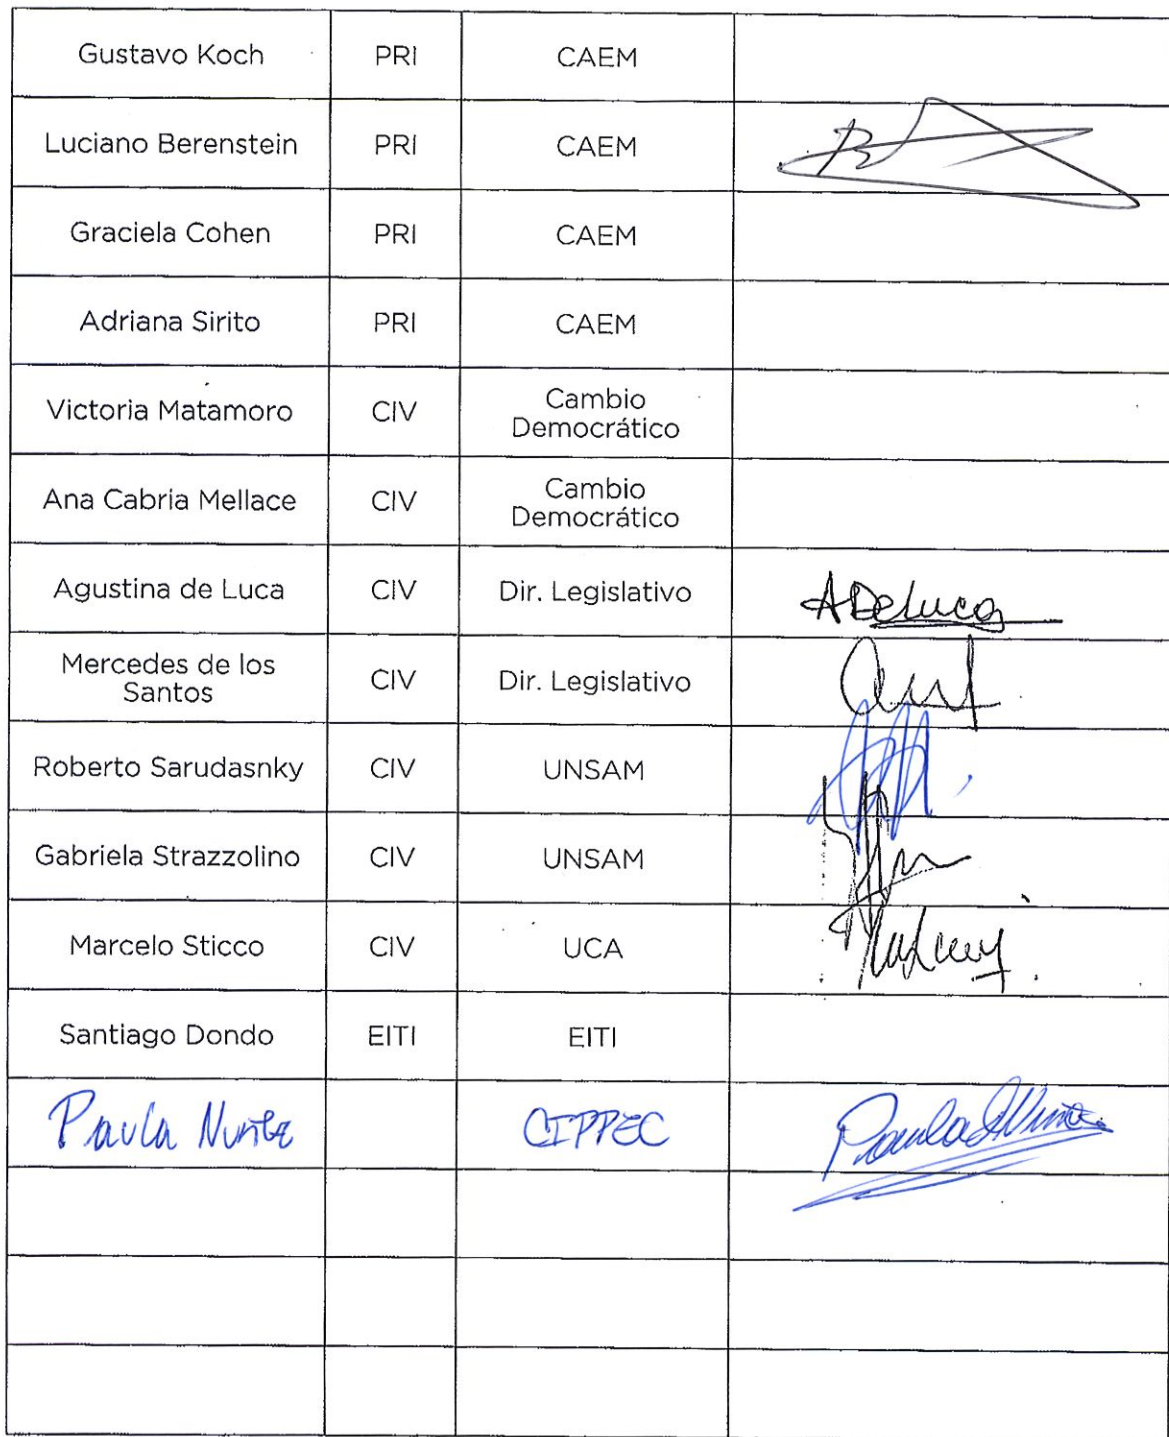 Gustavo Koch PRI CAEM
Luciano Berenstein PRI CAEM
Graciela Cohen PRI CAEM
Adriana Sirito PRI CAEM
Victoria Matamoro CIV Cambio
Democrático
Ana Cabria Mellace CIV Cambio
Democrático
Agustina de Luca CIV Dir. Legislativo ADeLuca
Mercedes de los
Santos CIV Dir. Legislativo
Roberto Sarudasnky CIV UNSAM
Gabriela Strazzolino CIV UNSAM
Marcelo Sticco CIV UCA
Santiago Dondo EITI EITI
Paula CIPPEC Paula